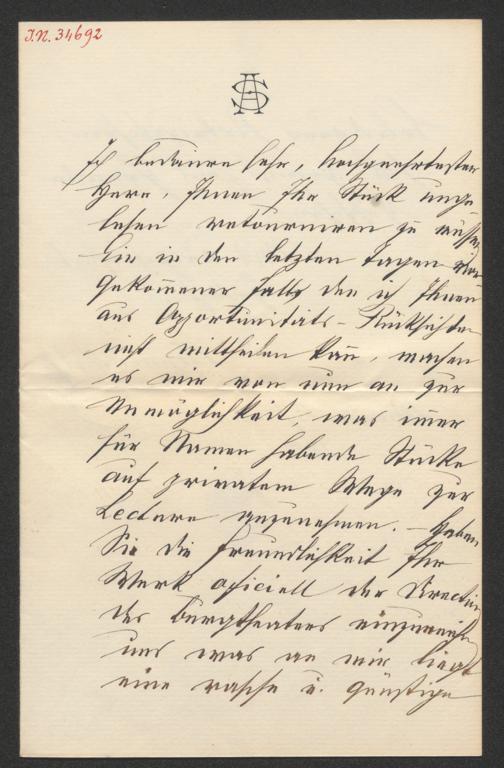 I.N. 34692
AS
Ich bedaure sehr, hochgeehrtester
Herr, Ihnen Ihr Stück unge
lesen retourniren zu müssen
Ein in den letzten Tagen vor
gekommener Fall, den ich Ihnen
aus Opportunitäts-Rücksichten
nicht mittheilen kann, machen
es mir von nun an zur
Unmöglichkeit, was immer
für Namen habende Stücke
auf privatem Wege zur
Lecture anzunehmen. – Haben
Sie die Freundlichkeit Ihr
Werk oficiell der Direction
des Burgtheaters einzureichen
und was an mir liegt
eine rasche u. günstige